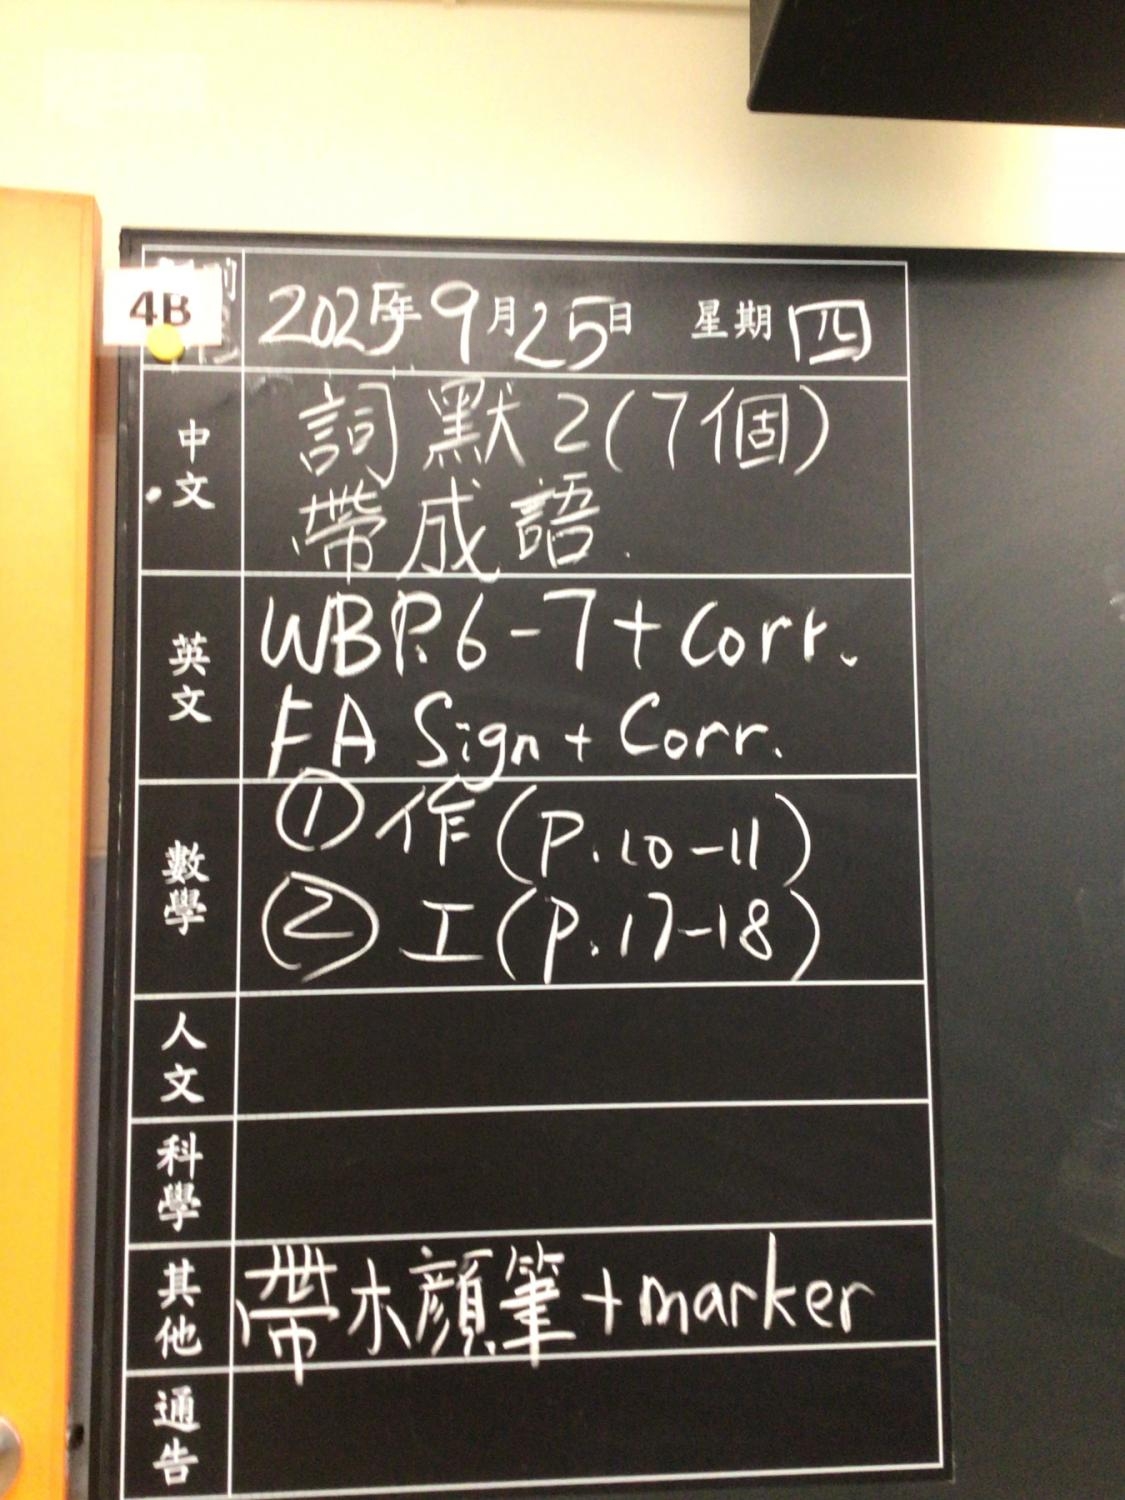 4B
2025年9月25日 星期四
中文 詞默2(7個)
帶成語.
英文 WB P.6-7 + Corr.
FA Sign + Corr.
數學 ① 作 (P.10-11)
② 工 (P.17-18)
人文
科學
其他 帶木顏筆 + marker
通告